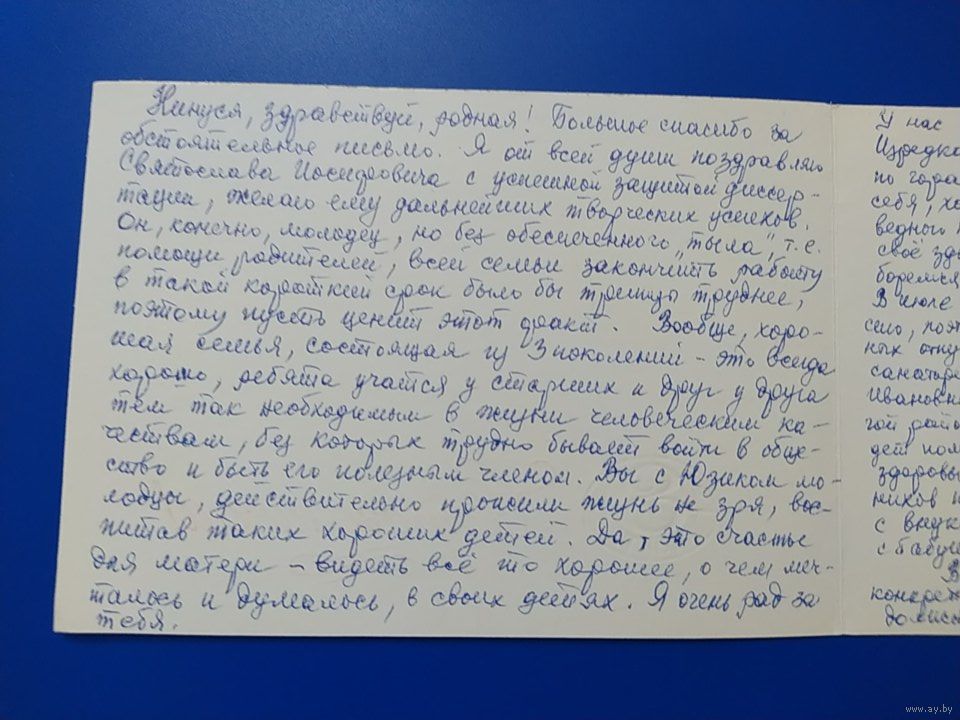 Нинуся, здравствуй, родная! Большое спасибо за
обстоятельное письмо. Я от всей души поздравляю
Святослава Иосифовича с успешной защитой диссер-
тации, желаю ему дальнейших творческих успехов.
Он, конечно, молодец, но без обеспеченного „тыла", т.е.
помощи родителей, всей семьи закончить работу
в такой короткий срок было бы трижды труднее,
поэтому пусть ценит этот факт. Вообще, хоро-
шая семья, состоящая из 3 поколений – это всегда
хорошо, ребята учатся у старших и друг у друга
тем так необходимым в жизни человеческим ка-
чествам, без которых трудно бывает войти в обще-
ство и быть его полезным членом. Вы с Юзиком мо-
лодцы, действительно прожили жизнь не зря, вос-
питав таких хороших детей. Да, это счастье
для матери – видеть всё то хорошее, о чем меч-
талось и думалось, в своих детях. Я очень рад за
тебя.
У нас
Изредка
по гора
себя, хо
ведного
своё здо
боремся
В июле
село, поэт
ных отпу
санатор
Ивановн
гой райо
дет пом
здоровь
ников
с внук
с бабу
В
конкрет
до писа
www.ay.by